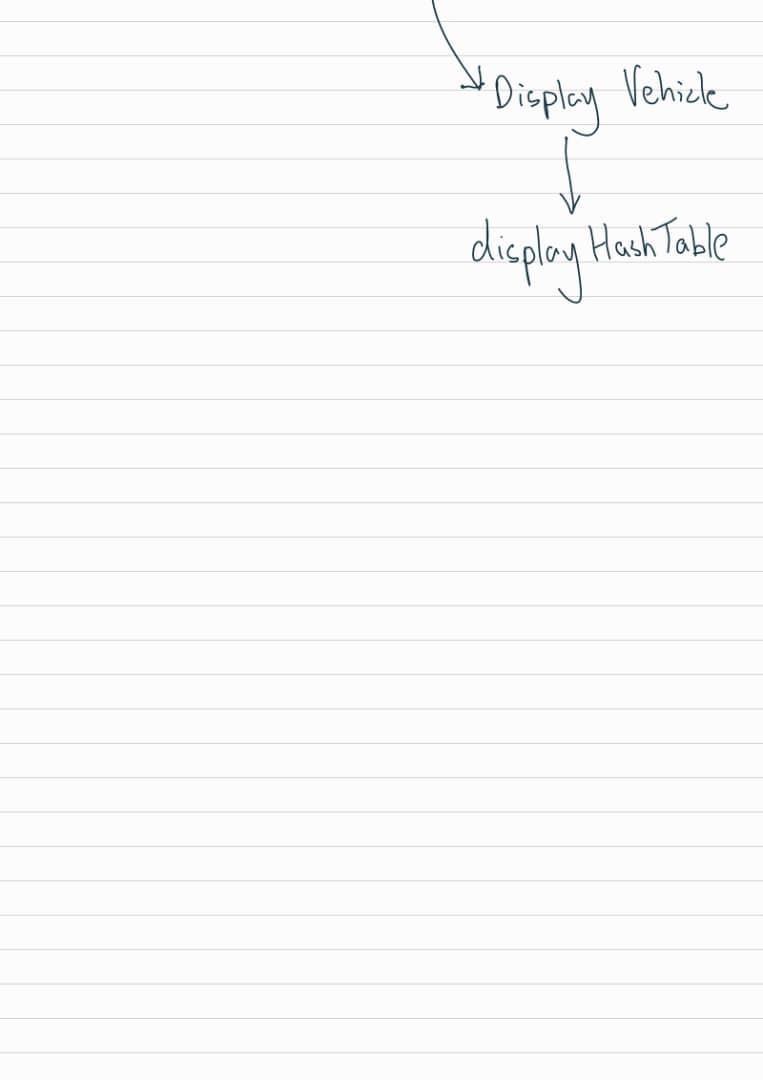 Display Vehicle
displayHashTable